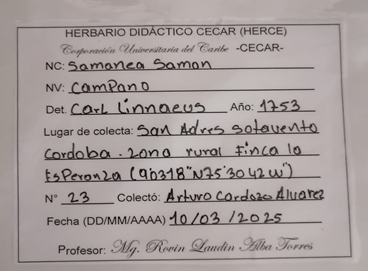 HERBARIO DIDÁCTICO CECAR (HERCE)
Corporación Universitaria del Caribe -CECAR-
NC: Samanea Saman
NV: Campano
Det. Carl Linnaeus Año: 1753
Lugar de colecta: San Adres sotavento
Cordoba. Zona rural Finca la
Esperanza (9°0318"N75°3042W")
N° 23 Colectó: Arturo Cardozo Alvarez
Fecha (DD/MM/AAAA) 10/03/2025
Profesor: Mg. Rovin Laudin Alba Torres